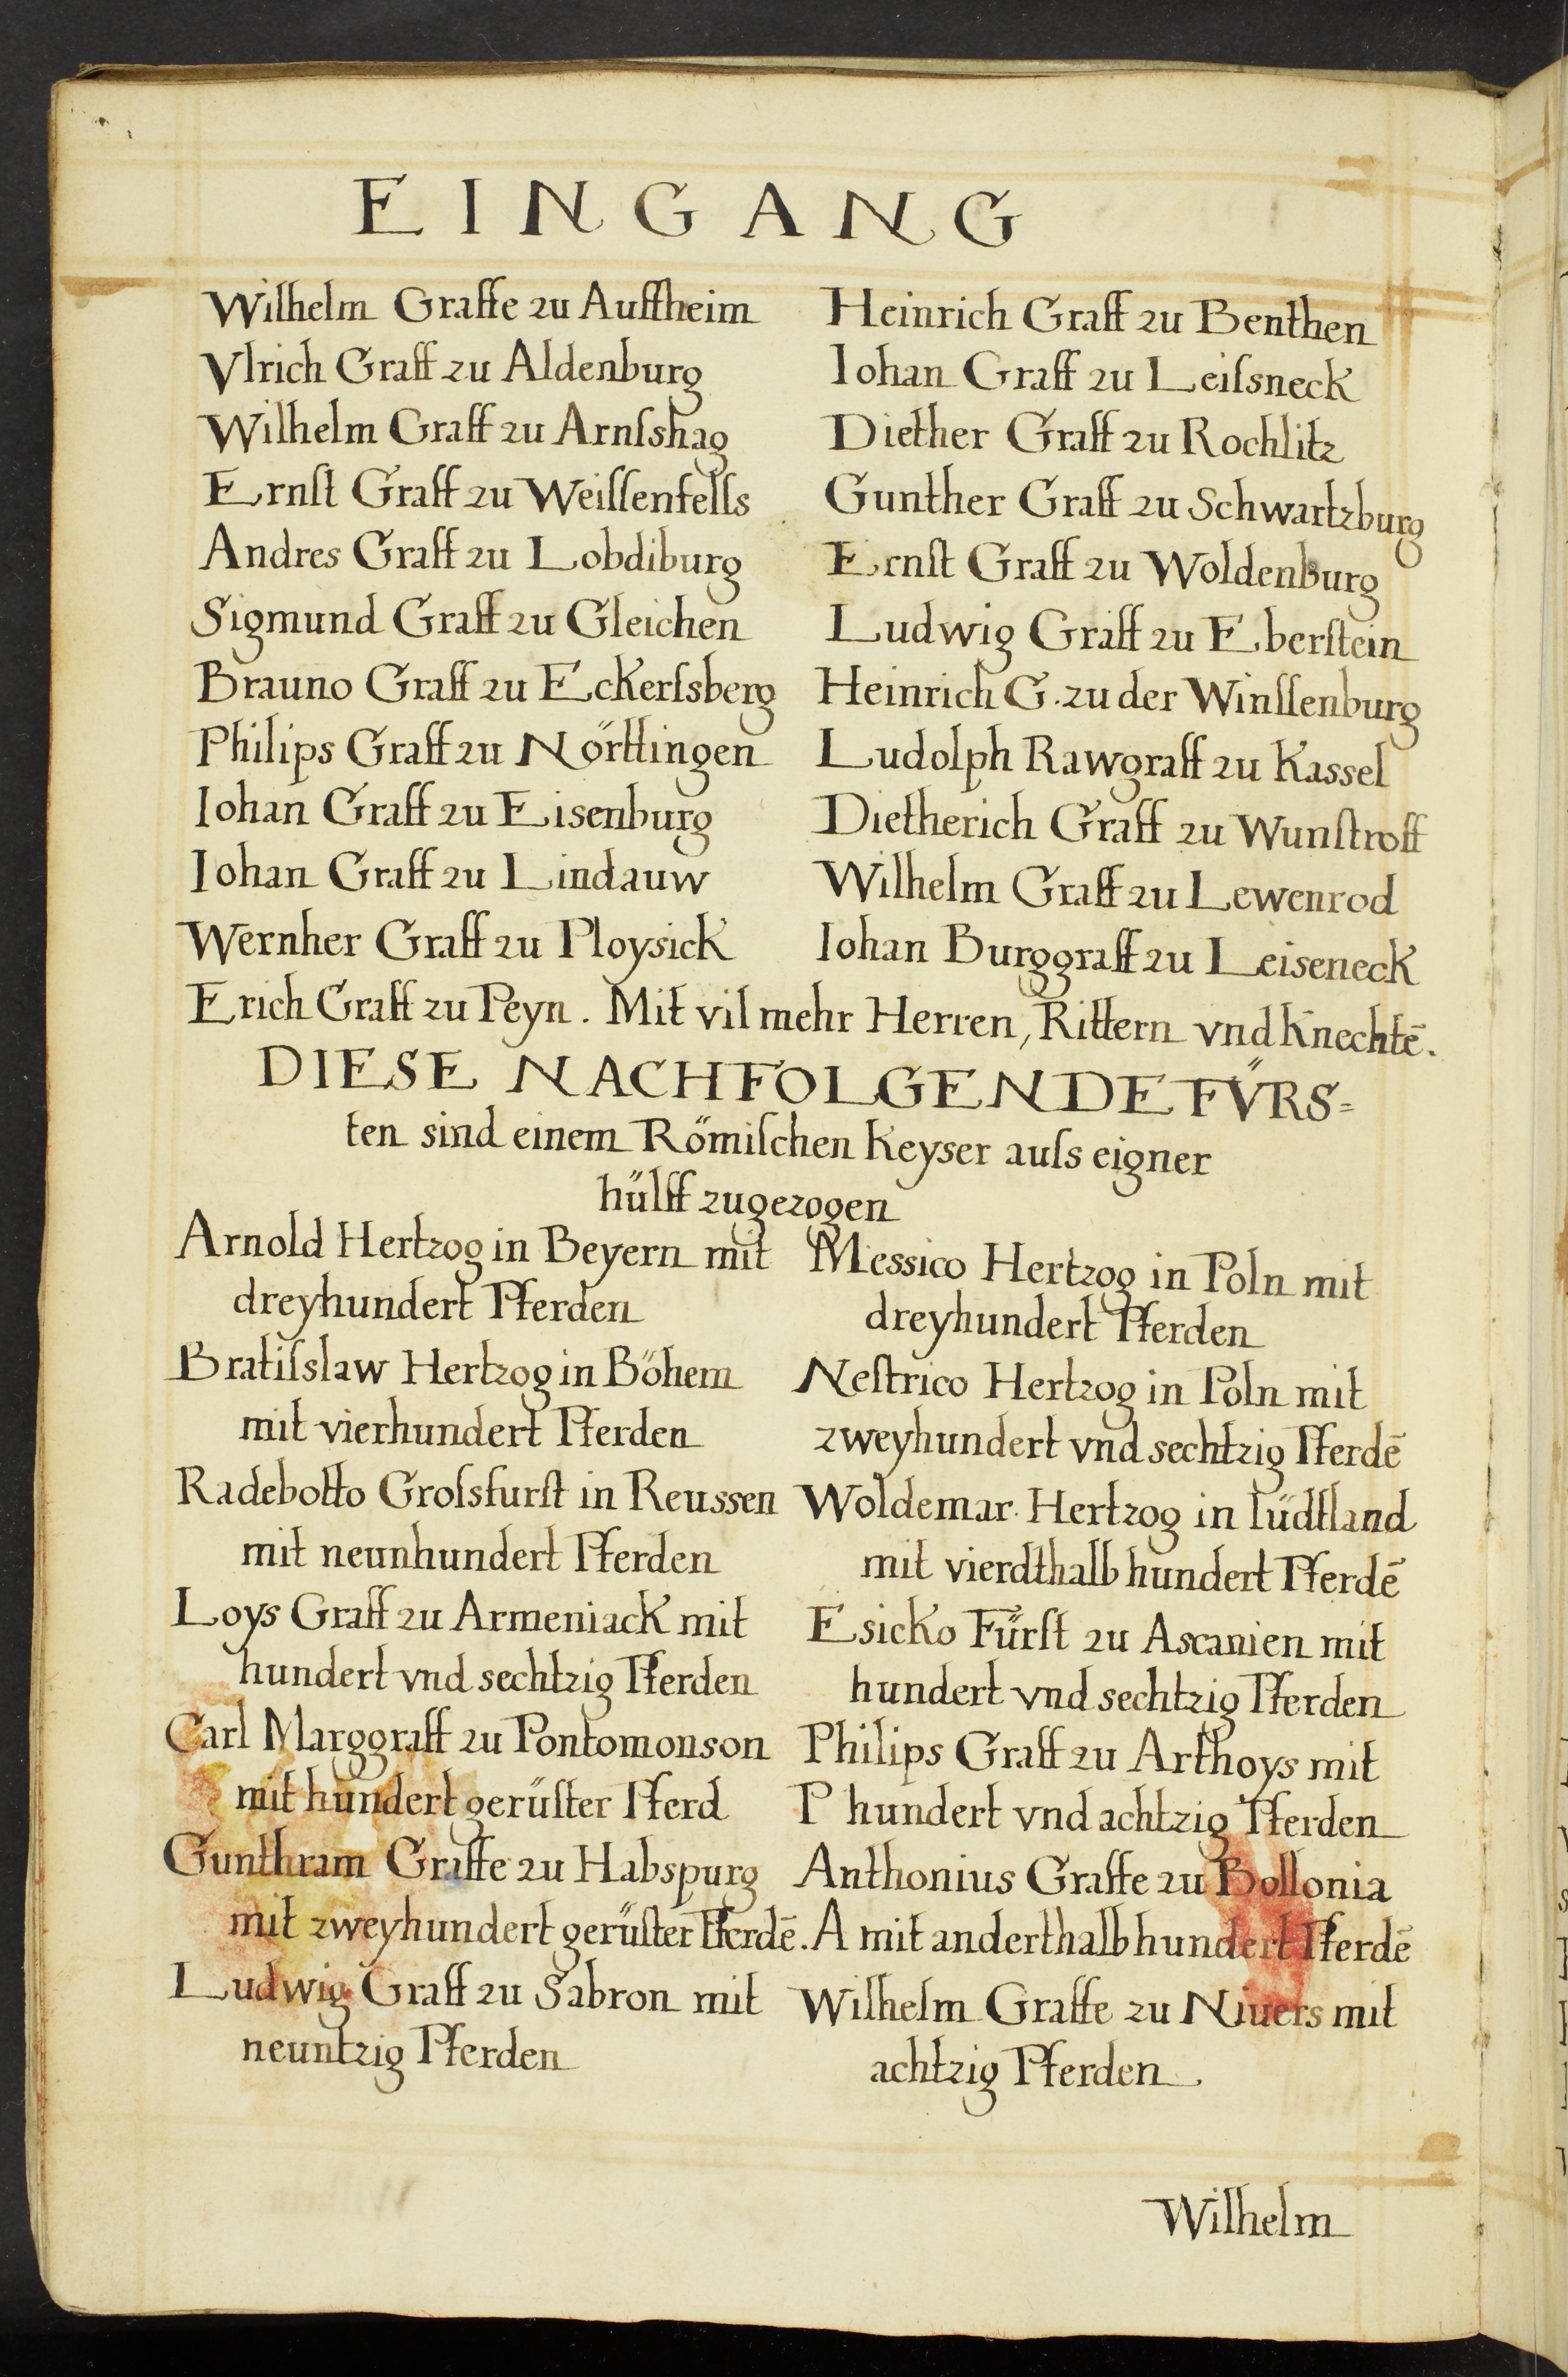 EINGANG
Wilhelm Graffe zu Auffheim
Vlrich Graff zu Aldenburg
Wilhelm Graff zu Arnſshag
Ernſt Graff zu Weiſſenfelſs
Andres Graff zu Lobdiburg
Sigmund Graff zu Gleichen
Brauno Graff zu Eckerſsberg
Philips Graff zu Nörttingen
Iohan Graff zu Eisenburg
Iohan Graff zu Lindauw
Wernher Graff zu Ploysick
Heinrich Graff zu Benthen
Iohan Graff zu Leiſsneck
Diether Graff zu Rochlitz
Gunther Graff zu Schwartzburg
Ernſt Graff zu Woldenburg
Ludwig Graff zu Eberſtein
Heinrich G. zu der Winſſenburg
Ludolph Rawgraff zu Kassel
Dietherich Graff zu Wunſtroff
Wilhelm Graff zu Lewenrod
Iohan Burggraff zu Leiseneck
Erich Graff zu Peyn. Mit vil mehr Herren, Rittern vnd Knechtē.
DIESE NACHFOLGENDE FV̈RS=
ten sind einem Römiſchen Keyser auſs eigner
hülff zugezogen
Arnold Hertzog in Beyern mit
dreyhundert Pferden
Bratiſslaw Hertzog in Böhem
mit vierhundert Pferden
Radebotto Groſsfurſt in Reussen
mit neunhundert Pferden
Loys Graff zu Armeniack mit
hundert vnd sechtzig Pferden
Carl Marggraff zu Pontomonson
mit hundert gerüſter Pferd
Gunthram Graffe zu Habspurg
mit zweyhundert gerüſter Pferdē.
Ludwig Graff zu Sabron mit
neuntzig Pferden
Messico Hertzog in Poln mit
dreyhundert Pferden
Neſtrico Hertzog in Poln mit
zweyhundert vnd sechtzig Pferdē
Woldemar Hertzog in Iüdtland
mit vierdthalb hundert Pferdē
Esicko Fürſt zu Ascanien mit
hundert vnd sechtzig Pferden
Philips Graff zu Arthoys mit
P hundert vnd achtzig Pferden
Anthonius Graffe zu Bollonia
A mit anderthalb hundert Pferdē
Wilhelm Graffe zu Niuers mit
achtzig Pferden
Wilhelm